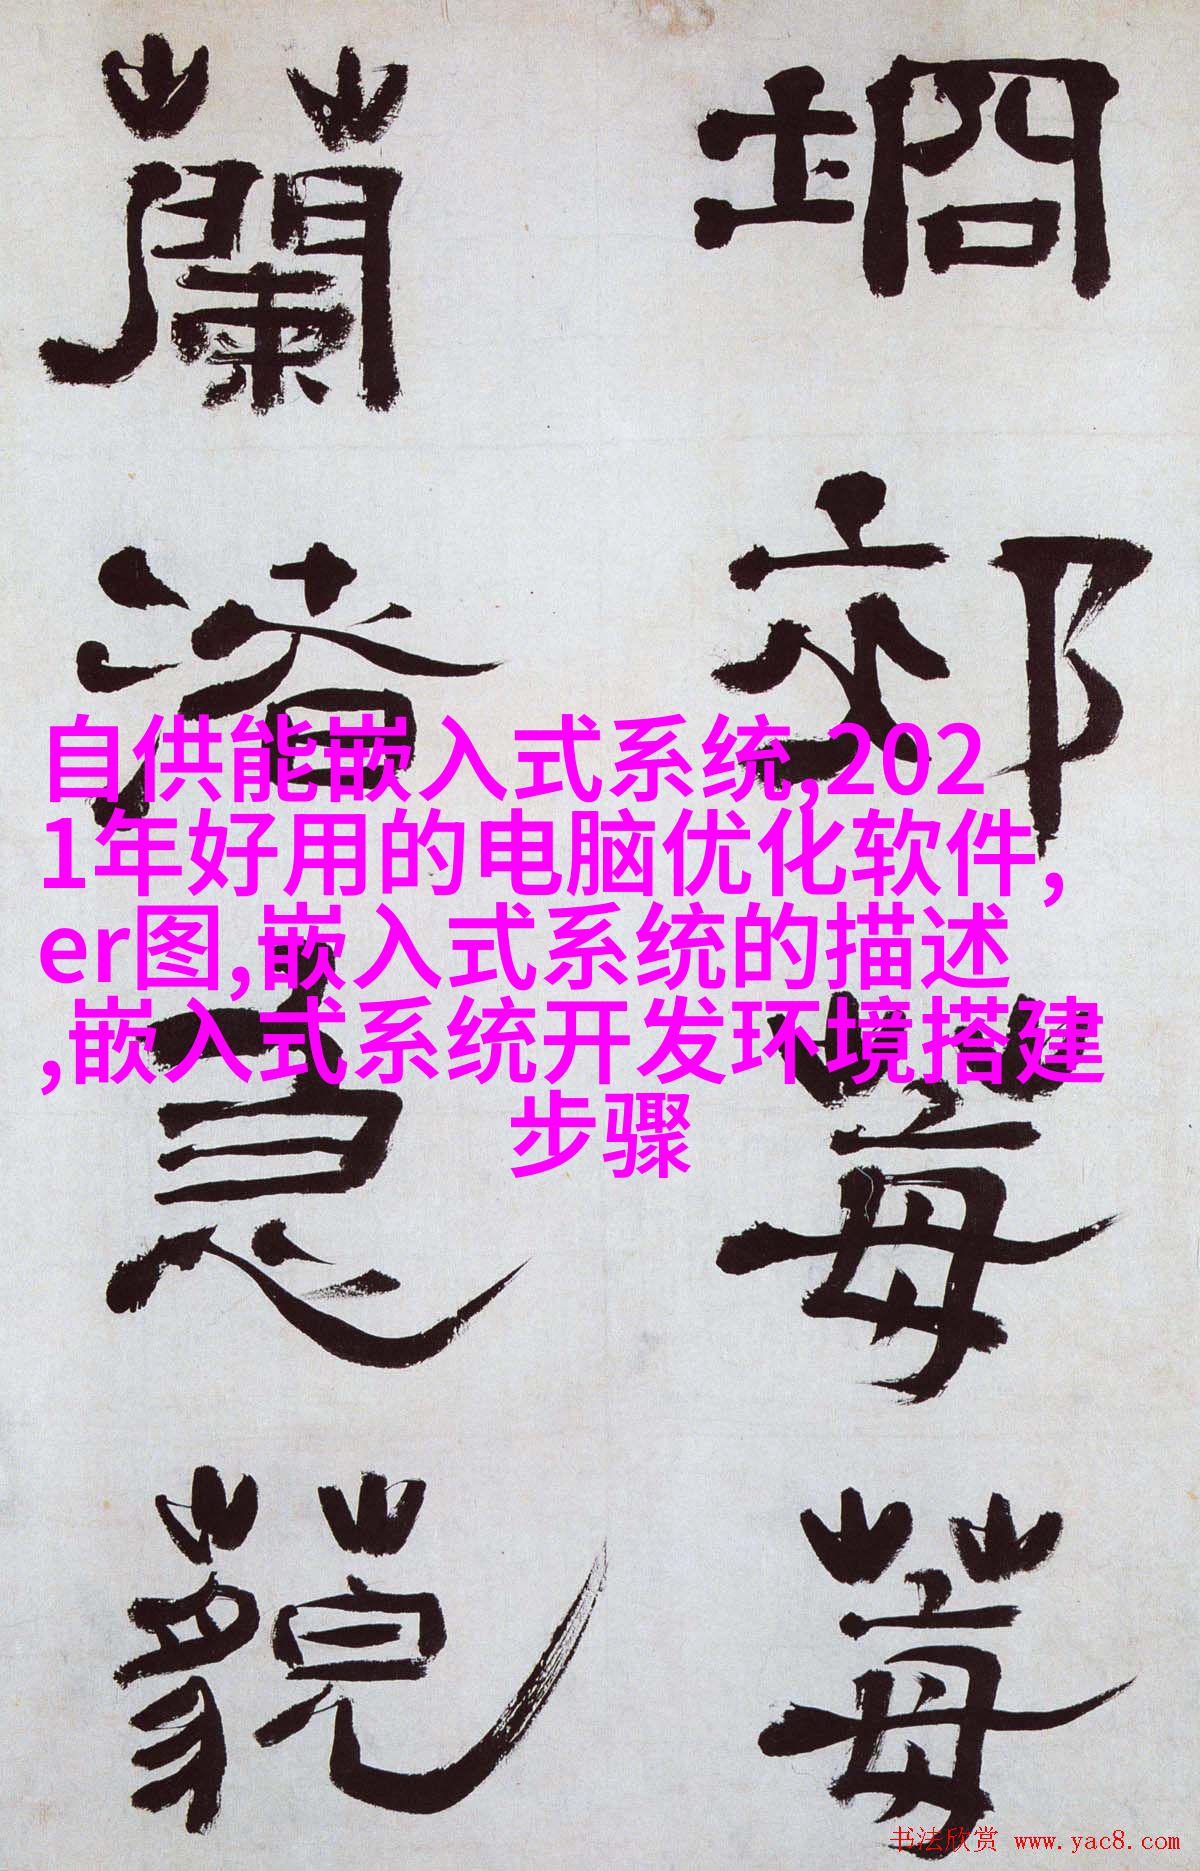 坰郊莓莓
蘭渚藐
自供能嵌入式系统,202
1年好用的电脑优化软件,
er图,嵌入式系统的描述
,嵌入式系统开发环境搭建
步骤
书法欣赏 www.yac8.com